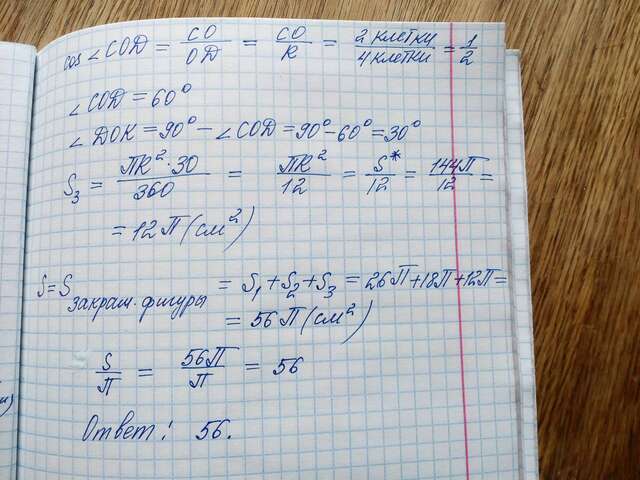 cos ∠COD = CO/OD = CO/R = 2 клетки/4 клетки = 1/2
∠COD = 60°
∠DOK = 90° - ∠COD = 90° - 60° = 30°
S₃ = ПR²·30/360 = ПR²/12 = S*/12 = 144П/12 =
= 12П (см²)
S = S закраш. фигуры = S₁ + S₂ + S₃ = 26П + 18П + 12П =
= 56П (см²)
S/П = 56П/П = 56
Ответ: 56.